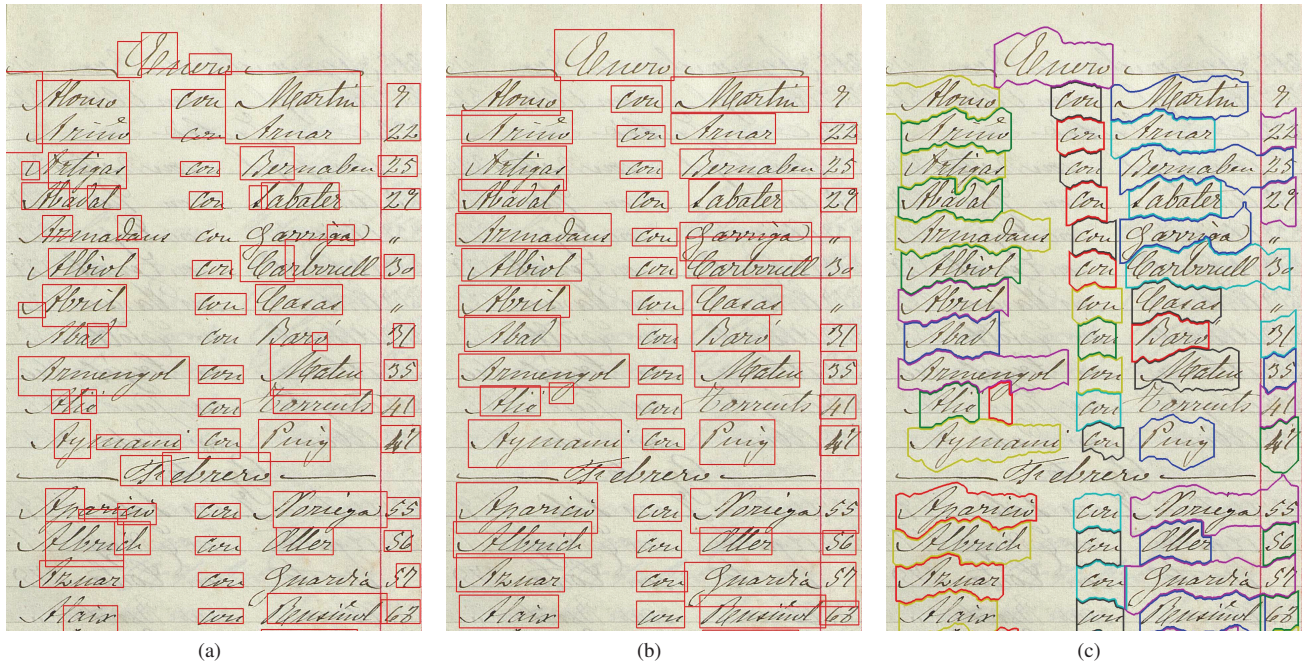 Enero
Alonso con Martin 9
Ariño con Aznar 22
Artigas con Bernabeu 25
Abadal con Sabater 29
Armadans con Garriga "
Albiol con Carbonell 30
Abril con Casas "
Abad con Baró 31
Armengol con Mateu 35
Alió con Torrents 41
Aymami con Puig 47
Febrero
Aparicio con Noriega 55
Albrich con Oller 56
Aznar con Guardia 57
Alaix con Rusiñol
(a)
Enero
Alonso con Martin 9
Ariño con Aznar 22
Artigas con Bernabeu 25
Abadal con Sabater 29
Armadans con Garriga "
Albiol con Carbonell 30
Abril con Casas "
Abad con Baró 31
Armengol con Mateu 35
Alió con Torrents 41
Aymami con Puig 47
Febrero
Aparicio con Noriega 55
Albrich con Oller 56
Aznar con Guardia 57
Alaix con Rusiñol
(b)
Enero
Alonso con Martin 9
Ariño con Aznar 22
Artigas con Bernabeu 25
Abadal con Sabater 29
Armadans con Garriga "
Albiol con Carbonell 30
Abril con Casas "
Abad con Baró 31
Armengol con Mateu 35
Alió con Torrents 41
Aymami con Puig 47
Febrero
Aparicio con Noriega 55
Albrich con Oller 56
Aznar con Guardia 57
Alaix con Rusiñol
(c)